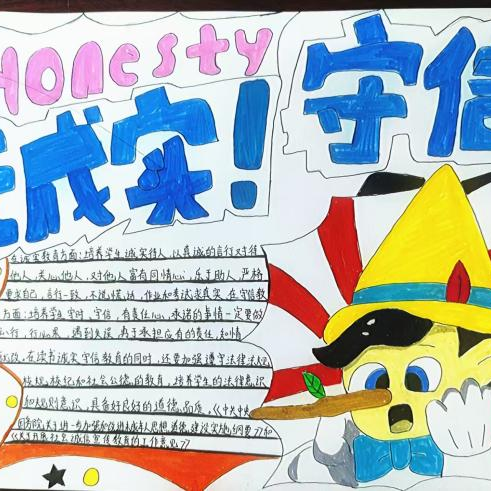 Honesty
诚实!
守信
在诚实教育方面:培养学生诚实待人,以真诚的言行对待
他人,关心他人,对他人富有同情心,乐于助人,严格
要求自己,言行一致,不说谎话,作业和考试求真实,在守信教
方面:培养学生守时,守信,有责任心,承诺的事情一定要做
言必行,行必果,遇到失误,勇于承担应有的责任,知错
就改,在读书诚实守信教育的同时,还要加强遵守法律法规
校规,校纪和社会公德的教育,培养学生的法律意识
和规则意识,具备好良好的道德品质,《中共中央
国务院关于进一步加强和改进未成年人思想道德建设实施纲要》和
《关于开展社会诚信宣传教育的工作意见》